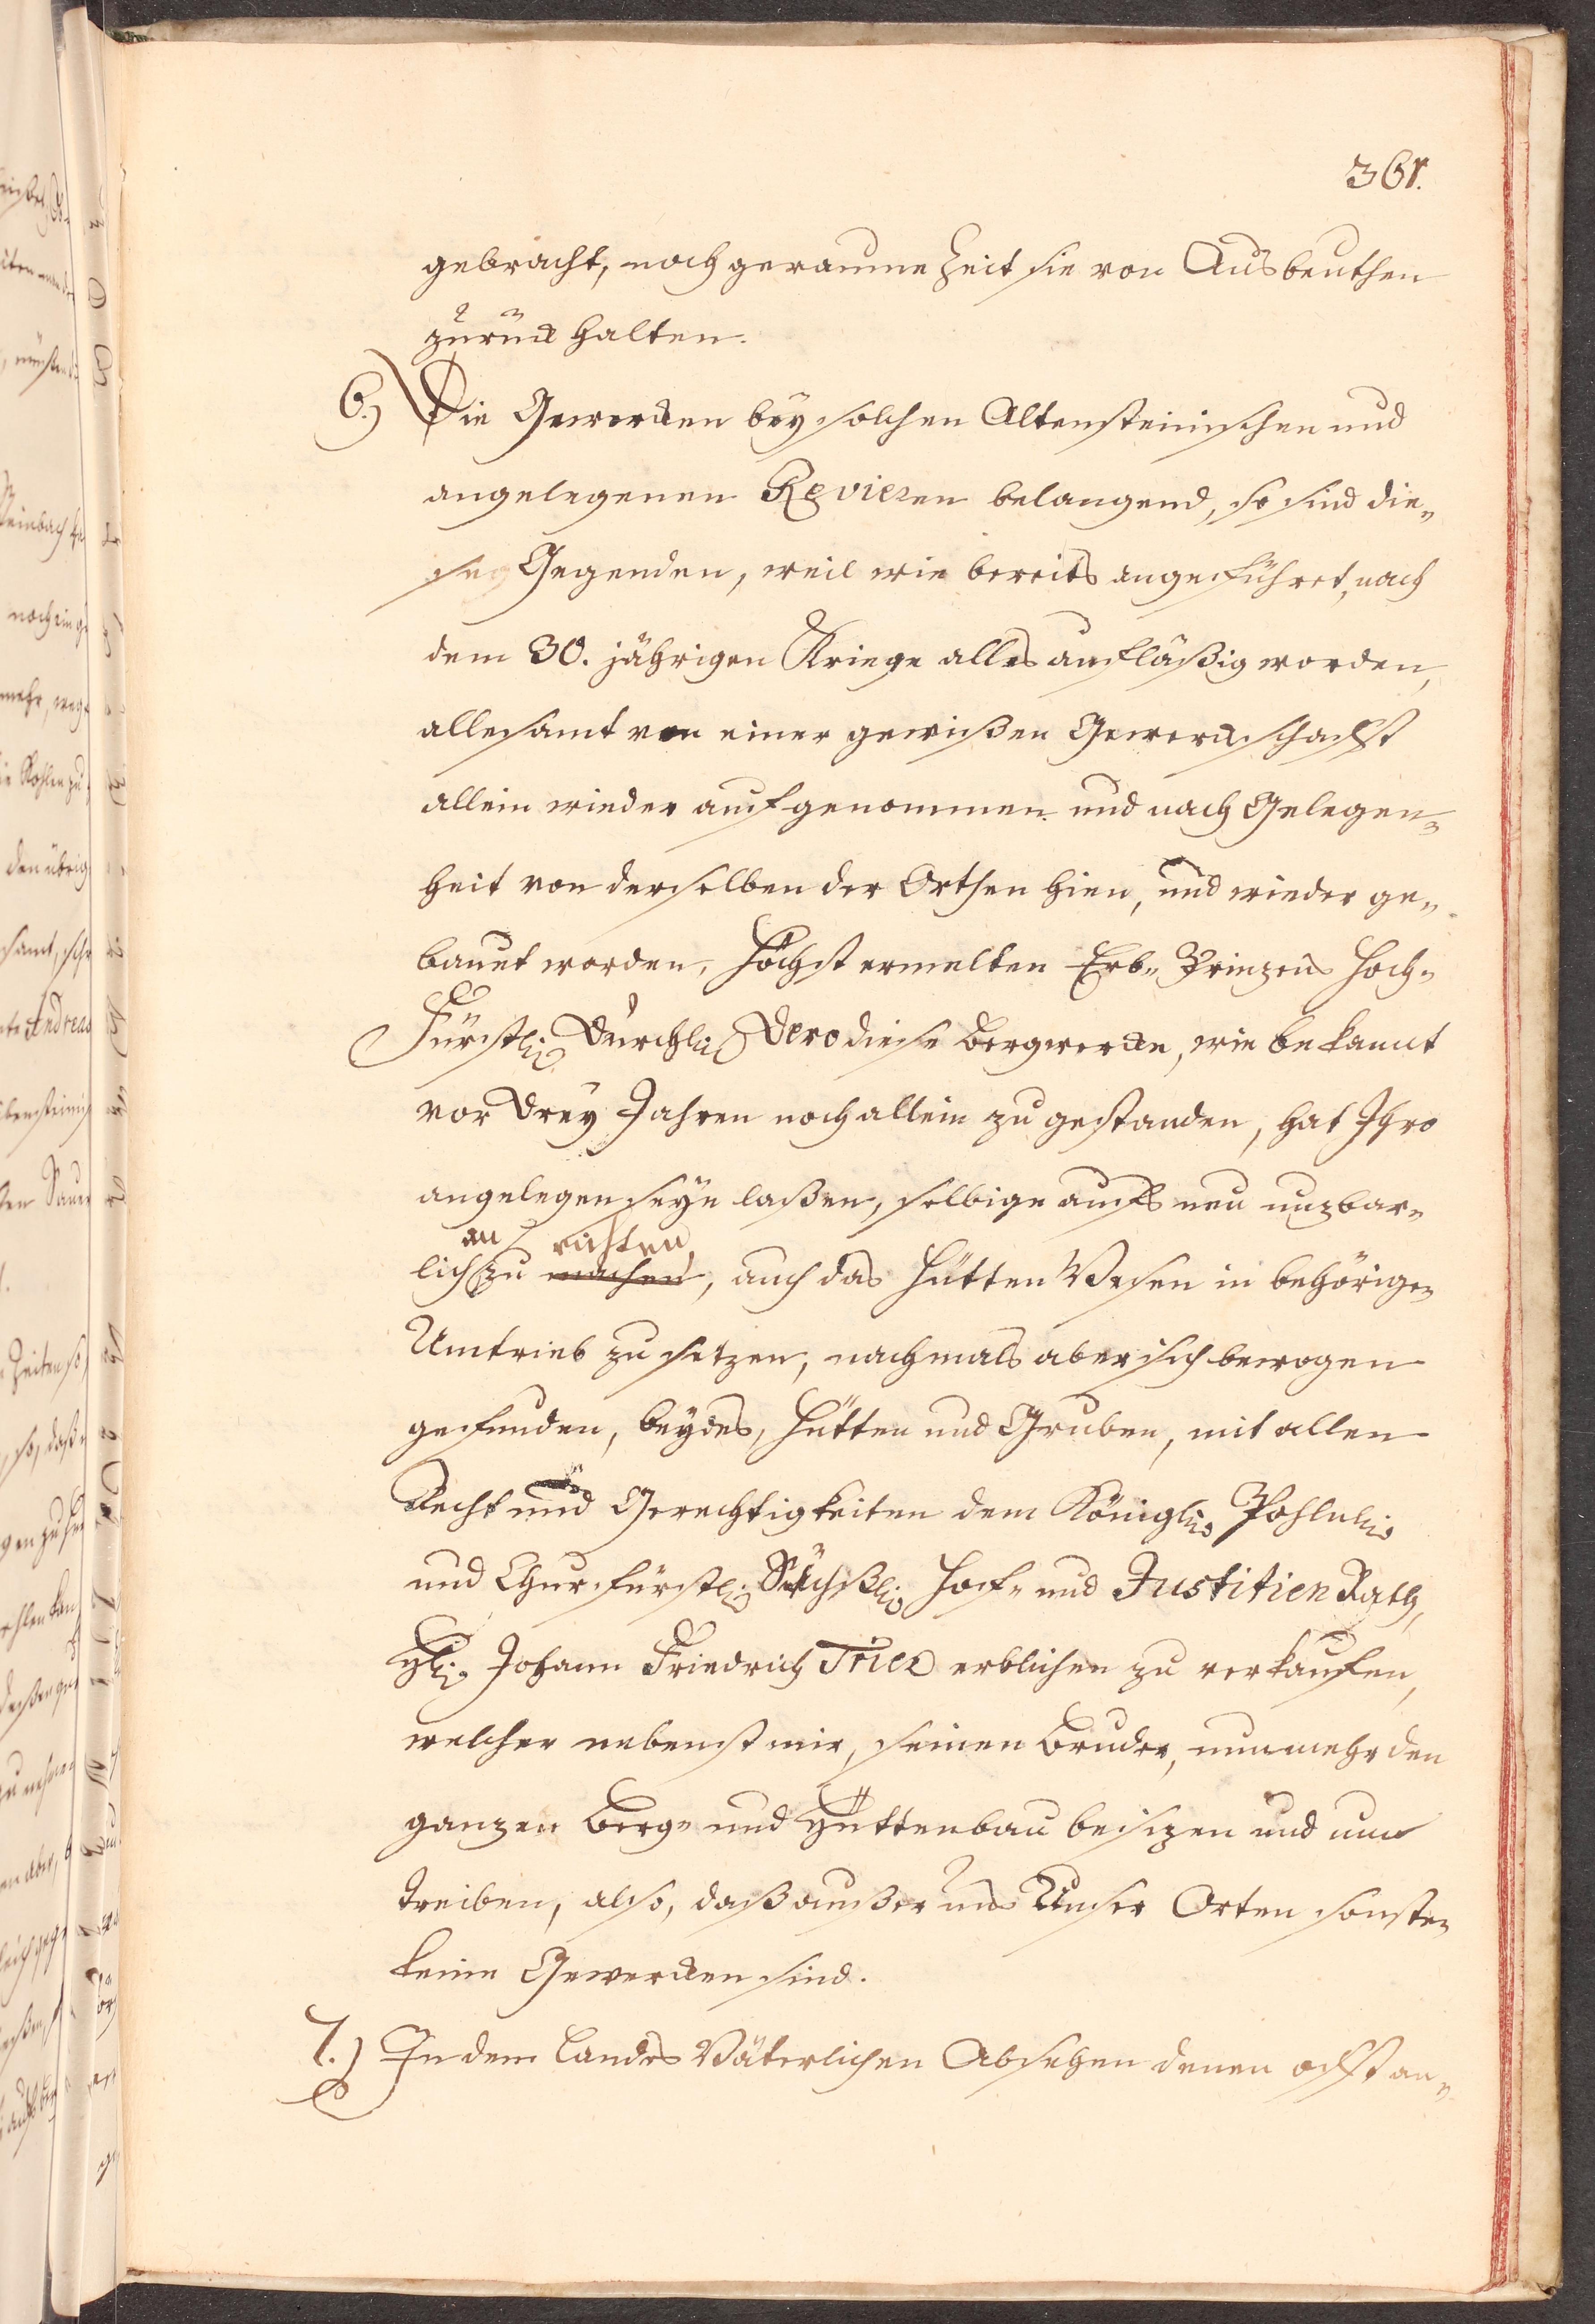 361.
gebracht, noch geraume Zeit sie von Ausbeuthen
zurück halten.
6.) Die Gewercken bey solchen Altensteinischen und
angelegenen Revieren belangend, so sind die„
se Gegenden, weil wie bereits angeführet, nach
dem 30. jährigen Kriege alles aufläßig worden,
allesamt von einer gewißen Gewerckschafft
allein wieder aufgenommen und nach Gelegen„
heit von derselben der Orthen hien, und wieder ge„
bauet worden, Höchst ermelten Erb„ Prinzens Hoch„
Fürstl. Durchl. Dero diese Bergwercke, wie bekannt
vor drey Jahren noch allein zu gestanden, hat Ihro
angelegen seyn laßen, selbige aufs neu nuzbar„
an richten
lich zu machen, auch das Hütten Wesen in behörigen
Umtrieb zu setzen, nachmals aber sich bewogen
gefunden, beydes, Hütten und Gruben, mit allen
Recht und Gerechtigkeiten dem Königl. Pohln.
und Churfürstl. Sächß. Hof„ und Justitien Rath,
H. Johann Friedrich Trier erblichen zu verkaufen,
welcher nebenst mir, seinen Bruder, nunmehr den
ganzen Berg„ und Hüttenbau besizen und um
treiben, also, daß außer uns Unser Orten sonsten
keine Gewercken sind.
7.) In dem Landes Väterlichen Absehen denen offt an„